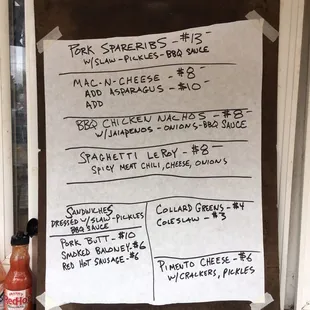 PORK SPARERIBS - $13
W/SLAW - PICKLES - BBQ SAUCE
MAC-N-CHEESE - $8
ADD ASPARAGUS - $10
ADD
BBQ CHICKEN NACHOS - $8
W/JALAPENOS - ONIONS - BBQ SAUCE
SPAGHETTI LEROY - $8
SPICY MEAT CHILI, CHEESE, ONIONS
SANDWICHES
DRESSED W/SLAW-PICKLES
BBQ SAUCE
PORK BUTT - $10
SMOKED BALONEY - $6
RED HOT SAUSAGE - $6
COLLARD GREENS - $4
COLESLAW - $3
PIMENTO CHEESE - $6
W/CRACKERS, PICKLES
RedHot